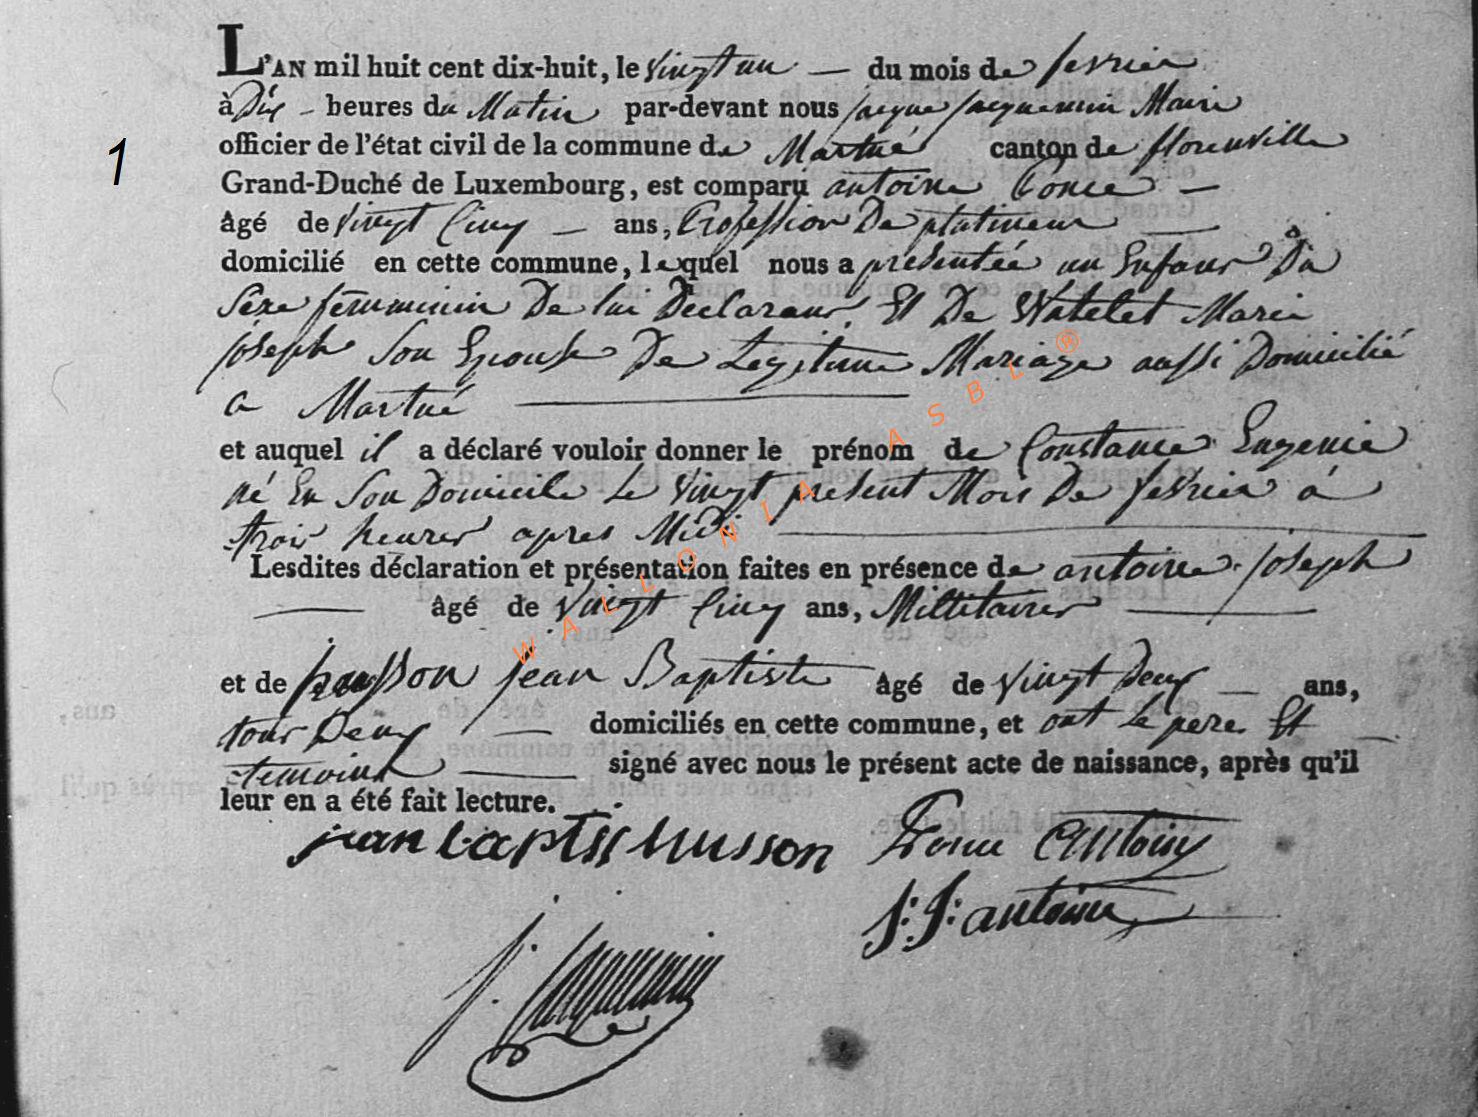 L'AN mil huit cent dix-huit, le vingt un — du mois de fevrier
à Dix - heures du Matin par-devant nous jacque jacquemin Maire
1
officier de l'état civil de la commune de Martué canton de florenville
Grand-Duché de Luxembourg, est comparu antoine Ponce —
âgé de vingt Cinq — ans, Profession De platineur —
domicilié en cette commune, lequel nous a présentée un Enfant Du
Sexe femminin De lui Declarant. Et De Watelet Marie
joseph Son Epouse De Legitime Mariage aussi Domicilié
a Martué —
et auquel il a déclaré vouloir donner le prénom de Constance Eugenie
né En Son Domicile Le vingt present Mois De fevrier á
trois heures apres Midi —
Lesdites déclaration et présentation faites en présence de antoine joseph
— âgé de vingt Cinq ans, Millitaires —
et de jean Baptiste âgé de vingt Deux — ans,
tous Deux — domiciliés en cette commune, et ont Le pere Et —
temoins — signé avec nous le présent acte de naissance, après qu'il
leur en a été fait lecture.
jean baptis husson Ponce antoine
J: J: antoine
j. jacquemin
WALLONIA ASBL ®